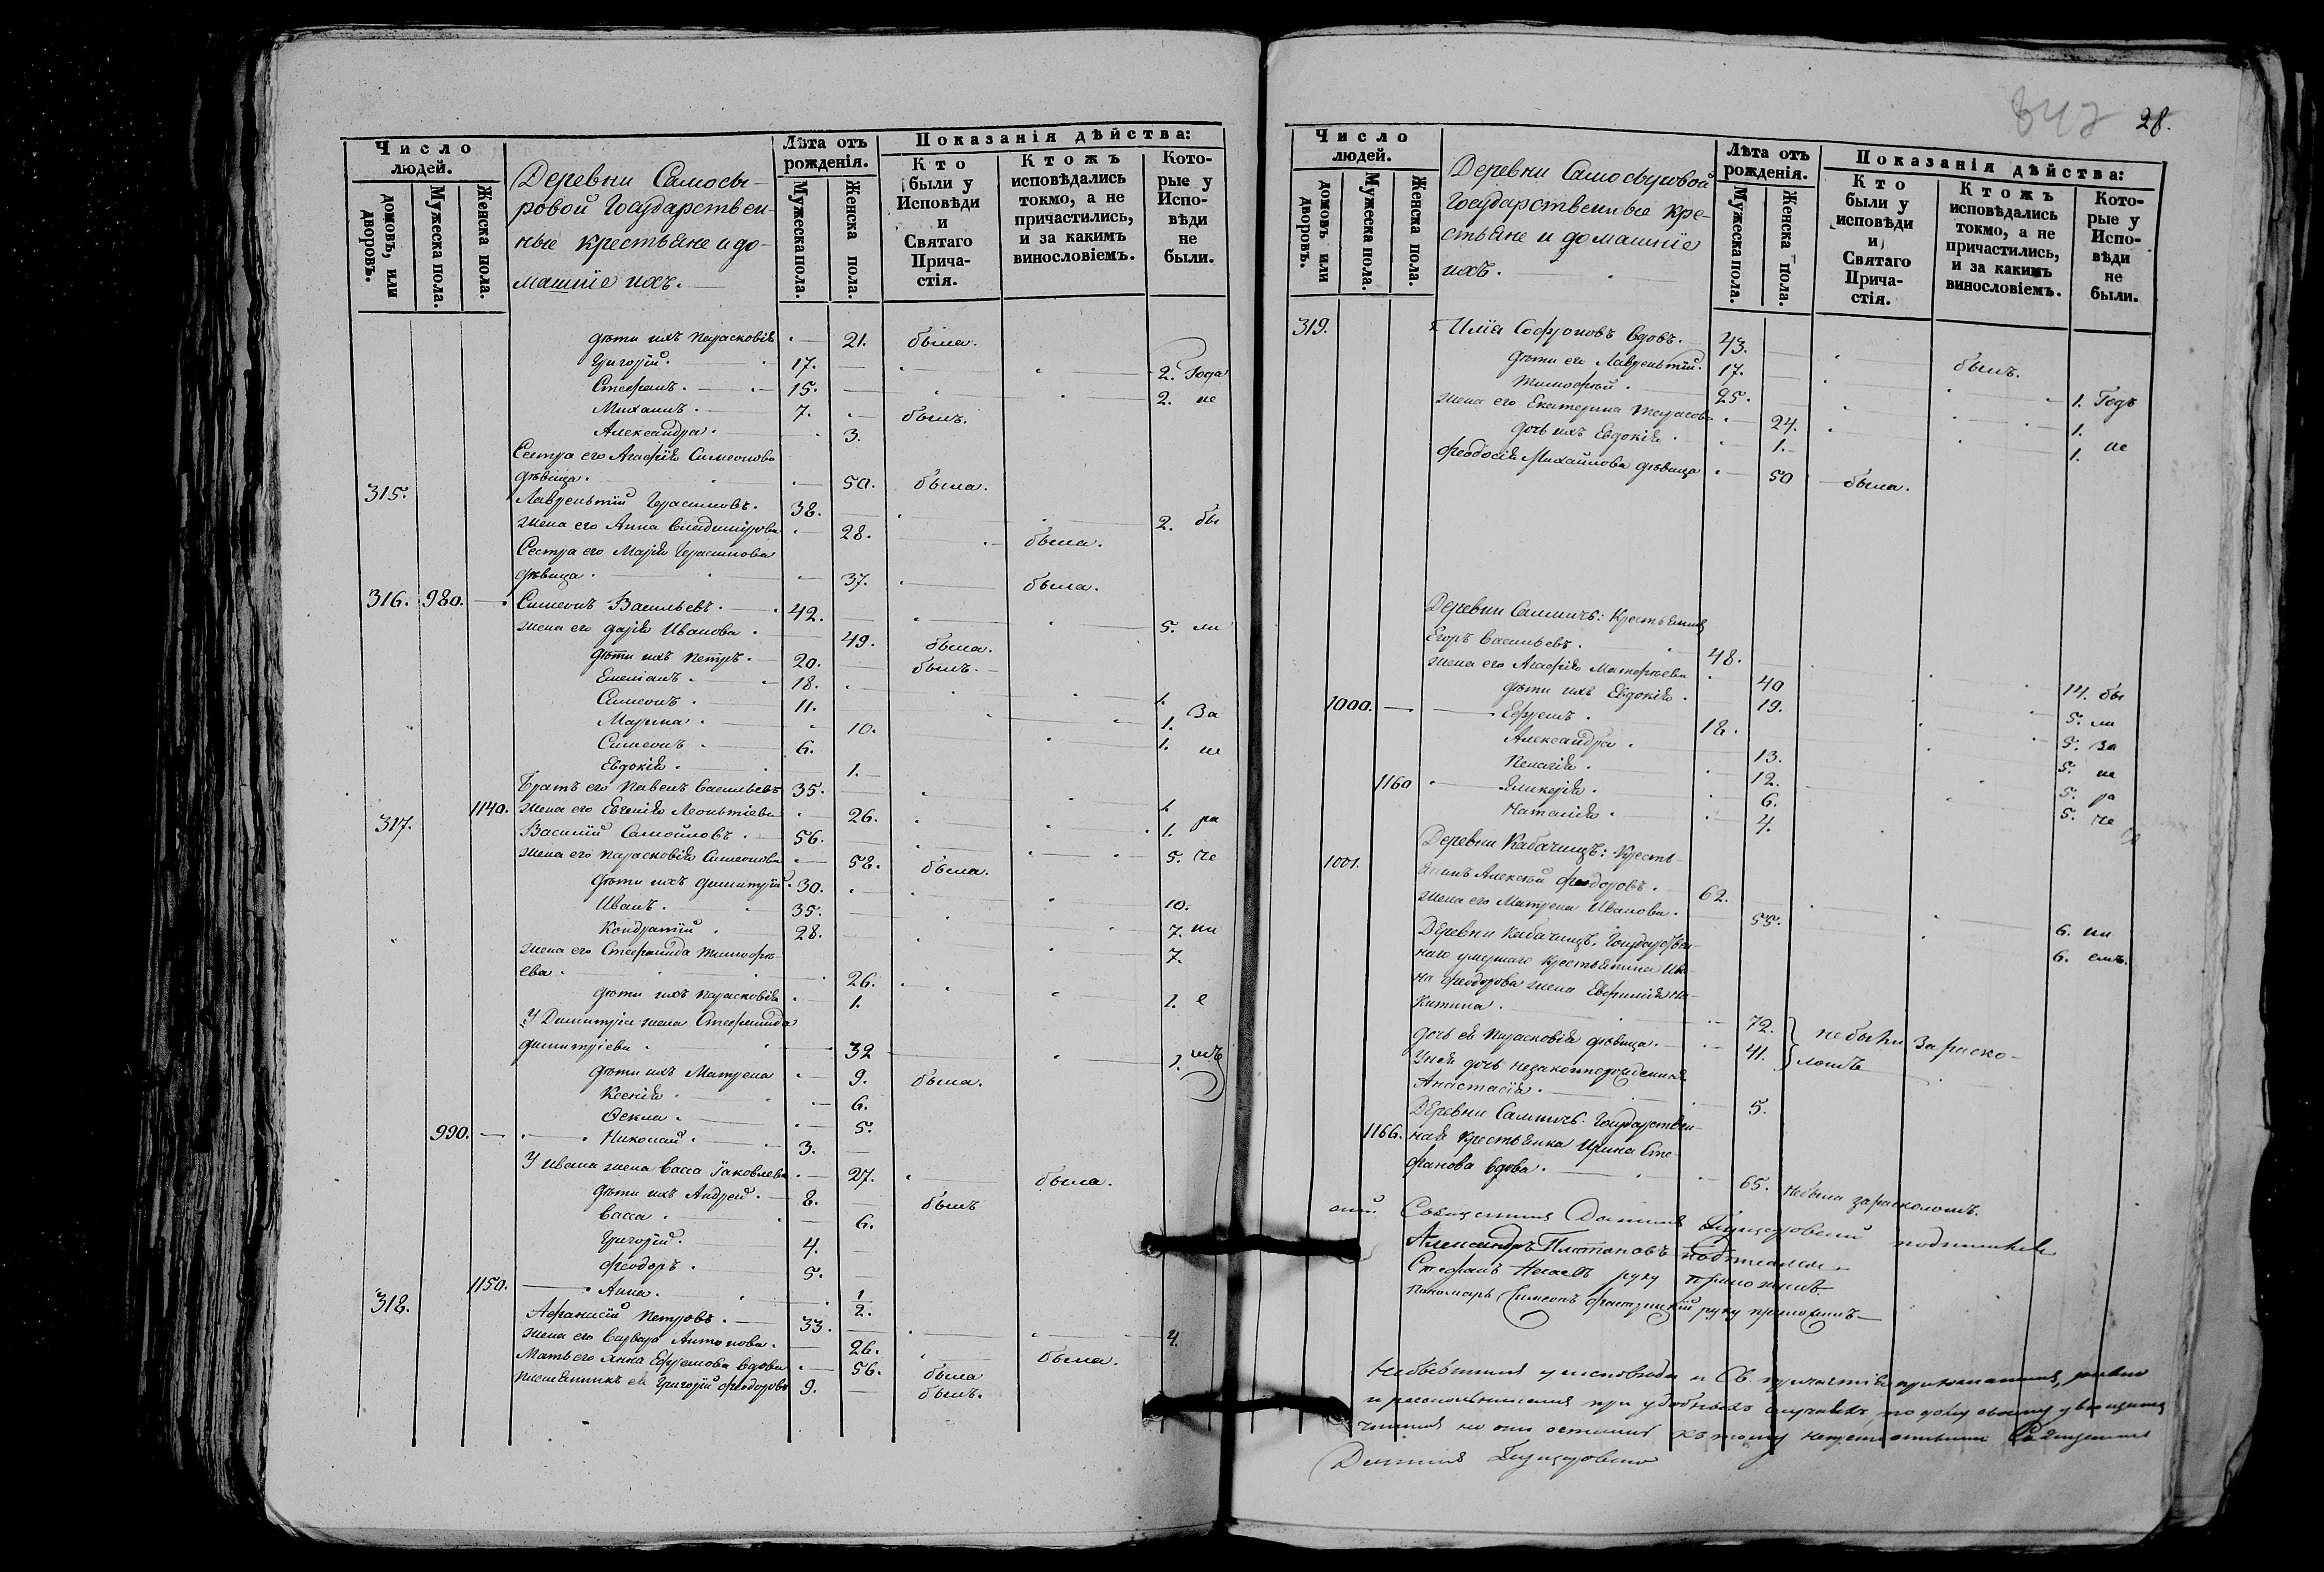 Число людей.
домовъ, или дворовъ.
Мужеска пола.
Женска пола.
Деревни Самосы-
ровой Государствен-
ные крестьяне и до-
машніе ихъ.
Лѣта отъ рожденія.
Мужеска пола.
Женска пола.
Показанія дѣйства:
Кто были у Исповѣди и Святаго Прича-стія.
Ктожъ исповѣдались токмо, а не причастились, и за какимъ винословіемъ.
Кото-рые у Испо-вѣди не были.
дѣти ихъ Парасковія 21. была.
Григорій. 17. 2. года
Стефанъ. 15. 2. не
Михаилъ. 7. былъ.
Александра. 3.
Сестра его Агафія Симеонова
дѣвица. 50. была.
315. Лаврентій Герасимовъ. 38. 2. бы
жена его Анна Владимірова 28. была.
Сестра его Марія Герасимова
дѣвица. 37. была.
316. 980. Симеонъ Васильевъ. 42. 5. ли
жена его Дарія Иванова. 49. была.
дѣти ихъ Петръ. 20. былъ.
Емеліанъ. 18. 1.
Симеонъ. 11. 1. За
Марина. 10. 1.
Симеонъ. 6. не
Евдокія. 1.
Братъ его Павелъ Васильевъ 35. 1.
1140. жена его Евгенія Леонтіева 26. 1. ра
317. Василій Самойловъ. 56. 5. че
жена его Парасковія Симеонова 58. была.
дѣти ихъ Димитрій. 30. 10.
Иванъ. 35. 7. ни
Кондратій. 28. 7.
жена его Стефанида Тимофѣ-
ева. 26. 1. е
дѣти ихъ Парасковія 1.
У Димитрія жена Стефанида
Димитріева. 32 1. мъ
дѣти ихъ Матрена 9. была.
Ксенія. 6.
Ѳекла. 5.
990. Николай. 3.
У Ивана жена Васса Іаковлева 27. была.
дѣти ихъ Андрей. 8. былъ
Васса. 6.
Григорій. 4.
Феодоръ. 5.
1150. Анна. 1/2.
318. Афанасій Петровъ. 33. 4.
жена его Варвара Антонова. 26. была.
Мать его Анна Ефремова вдова 56. была
племянникъ ея Григорій Феодоровъ 9. былъ.
28.
Число людей.
домовъ или дворовъ.
Мужеска пола.
Женска пола.
Деревни Самосыровой
Государственные кре-
стьяне и домашніе
ихъ.
Лѣта отъ рожденія.
Мужеска пола.
Женска пола.
Показанія дѣйства:
Кто были у исповѣди и Святаго Прича-стія.
Ктожъ исповѣдались токмо, а не причастились, и за какимъ винословіемъ.
Кото-рые у Испо-вѣди не были.
319. Илія Софроновъ вдовъ. 43. былъ.
дѣти его Лаврентій. 17. 1. Годъ
Тимофей. 25. 1.
жена его Екатерина Тарасова 24. 1. не
дочь ихъ Евдокія. 1.
Феодосія Михайлова дѣвица 50 была.
Деревни Салмичъ: Крестьянинъ
Егоръ Васильевъ. 48. 14. бы
жена его Агафія Матфѣева 40 5. ли
дѣти ихъ Евдокія. 19. 5. За
1000. Ефремъ. 18. 5. не
Александра. 13. 5. ра
Пелагія. 12. 5. че
1160 Гликерія. 6.
Наталія. 4.
Деревни Кабачищъ: Кресть-
1001. янинъ Алексѣй Феодоровъ. 62. 6. ни
жена его Матрена Иванова. 55. 6. емъ.
Деревни Кабачищъ, Государствен-
наго умершаго крестьянина Ива-
на Феодорова жена Евфимія Ни-
китина. 72. не были За раско-
дочь ея Парасковія дѣвица. 41. ломъ
У ней дочь незаконнорожденная
Анастасія. 5.
Деревни Салмичъ. Государствен-
1166. ная крестьянка Ирина Сте-
фанова вдова. 65. не была за расколомъ.
Священникъ подписался
Александръ Платоновъ подписался
Стефанъ руку приложилъ
Пономарь Симеонъ руку приложилъ
Небывшимъ у исповѣди и Св. причастія
и при удобныхъ случаяхъ, по долгу своему
но они